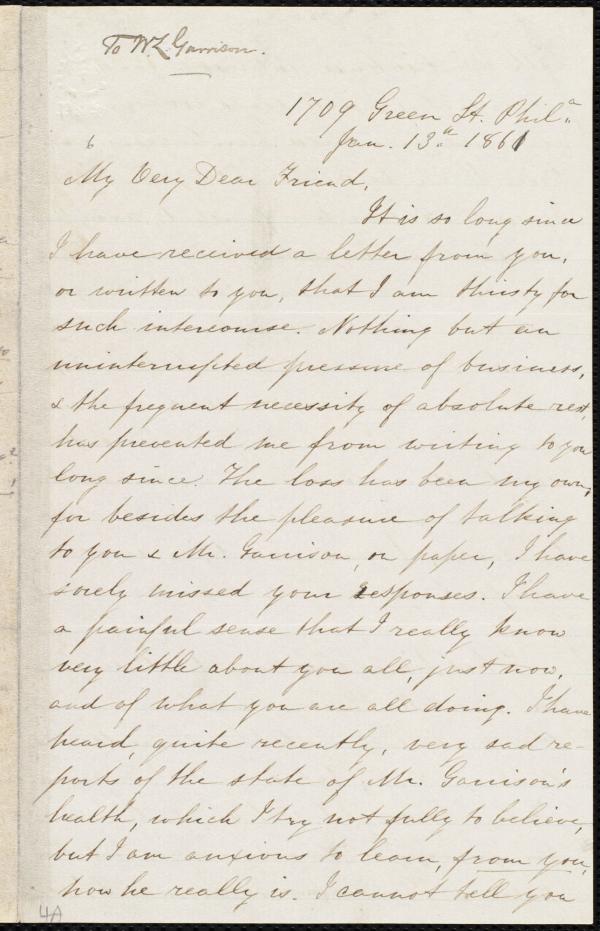 To W L Garrison.
1709 Green St. Phil.a
Jan. 13.th 1861
6
My Very Dear Friend,
It is so long since
I have received a letter from you,
or written to you, that I am thirsty for
such intercourse. Nothing but an
uninterrupted pressure of business,
& the frequent necessity of absolute rest,
has prevented me from writing to you
long since. The loss has been my own,
for besides the pleasure of talking
to you & Mr. Garrison, on paper, I have
sorely missed your responses. I have
a painful sense that I really know
very little about you all, just now,
and of what you are all doing. I have
heard, quite recently, very sad re-
ports of the state of Mr. Garrison's
health, which I try not fully to believe,
but I am anxious to learn, from you,
how he really is. I cannot tell you
4A